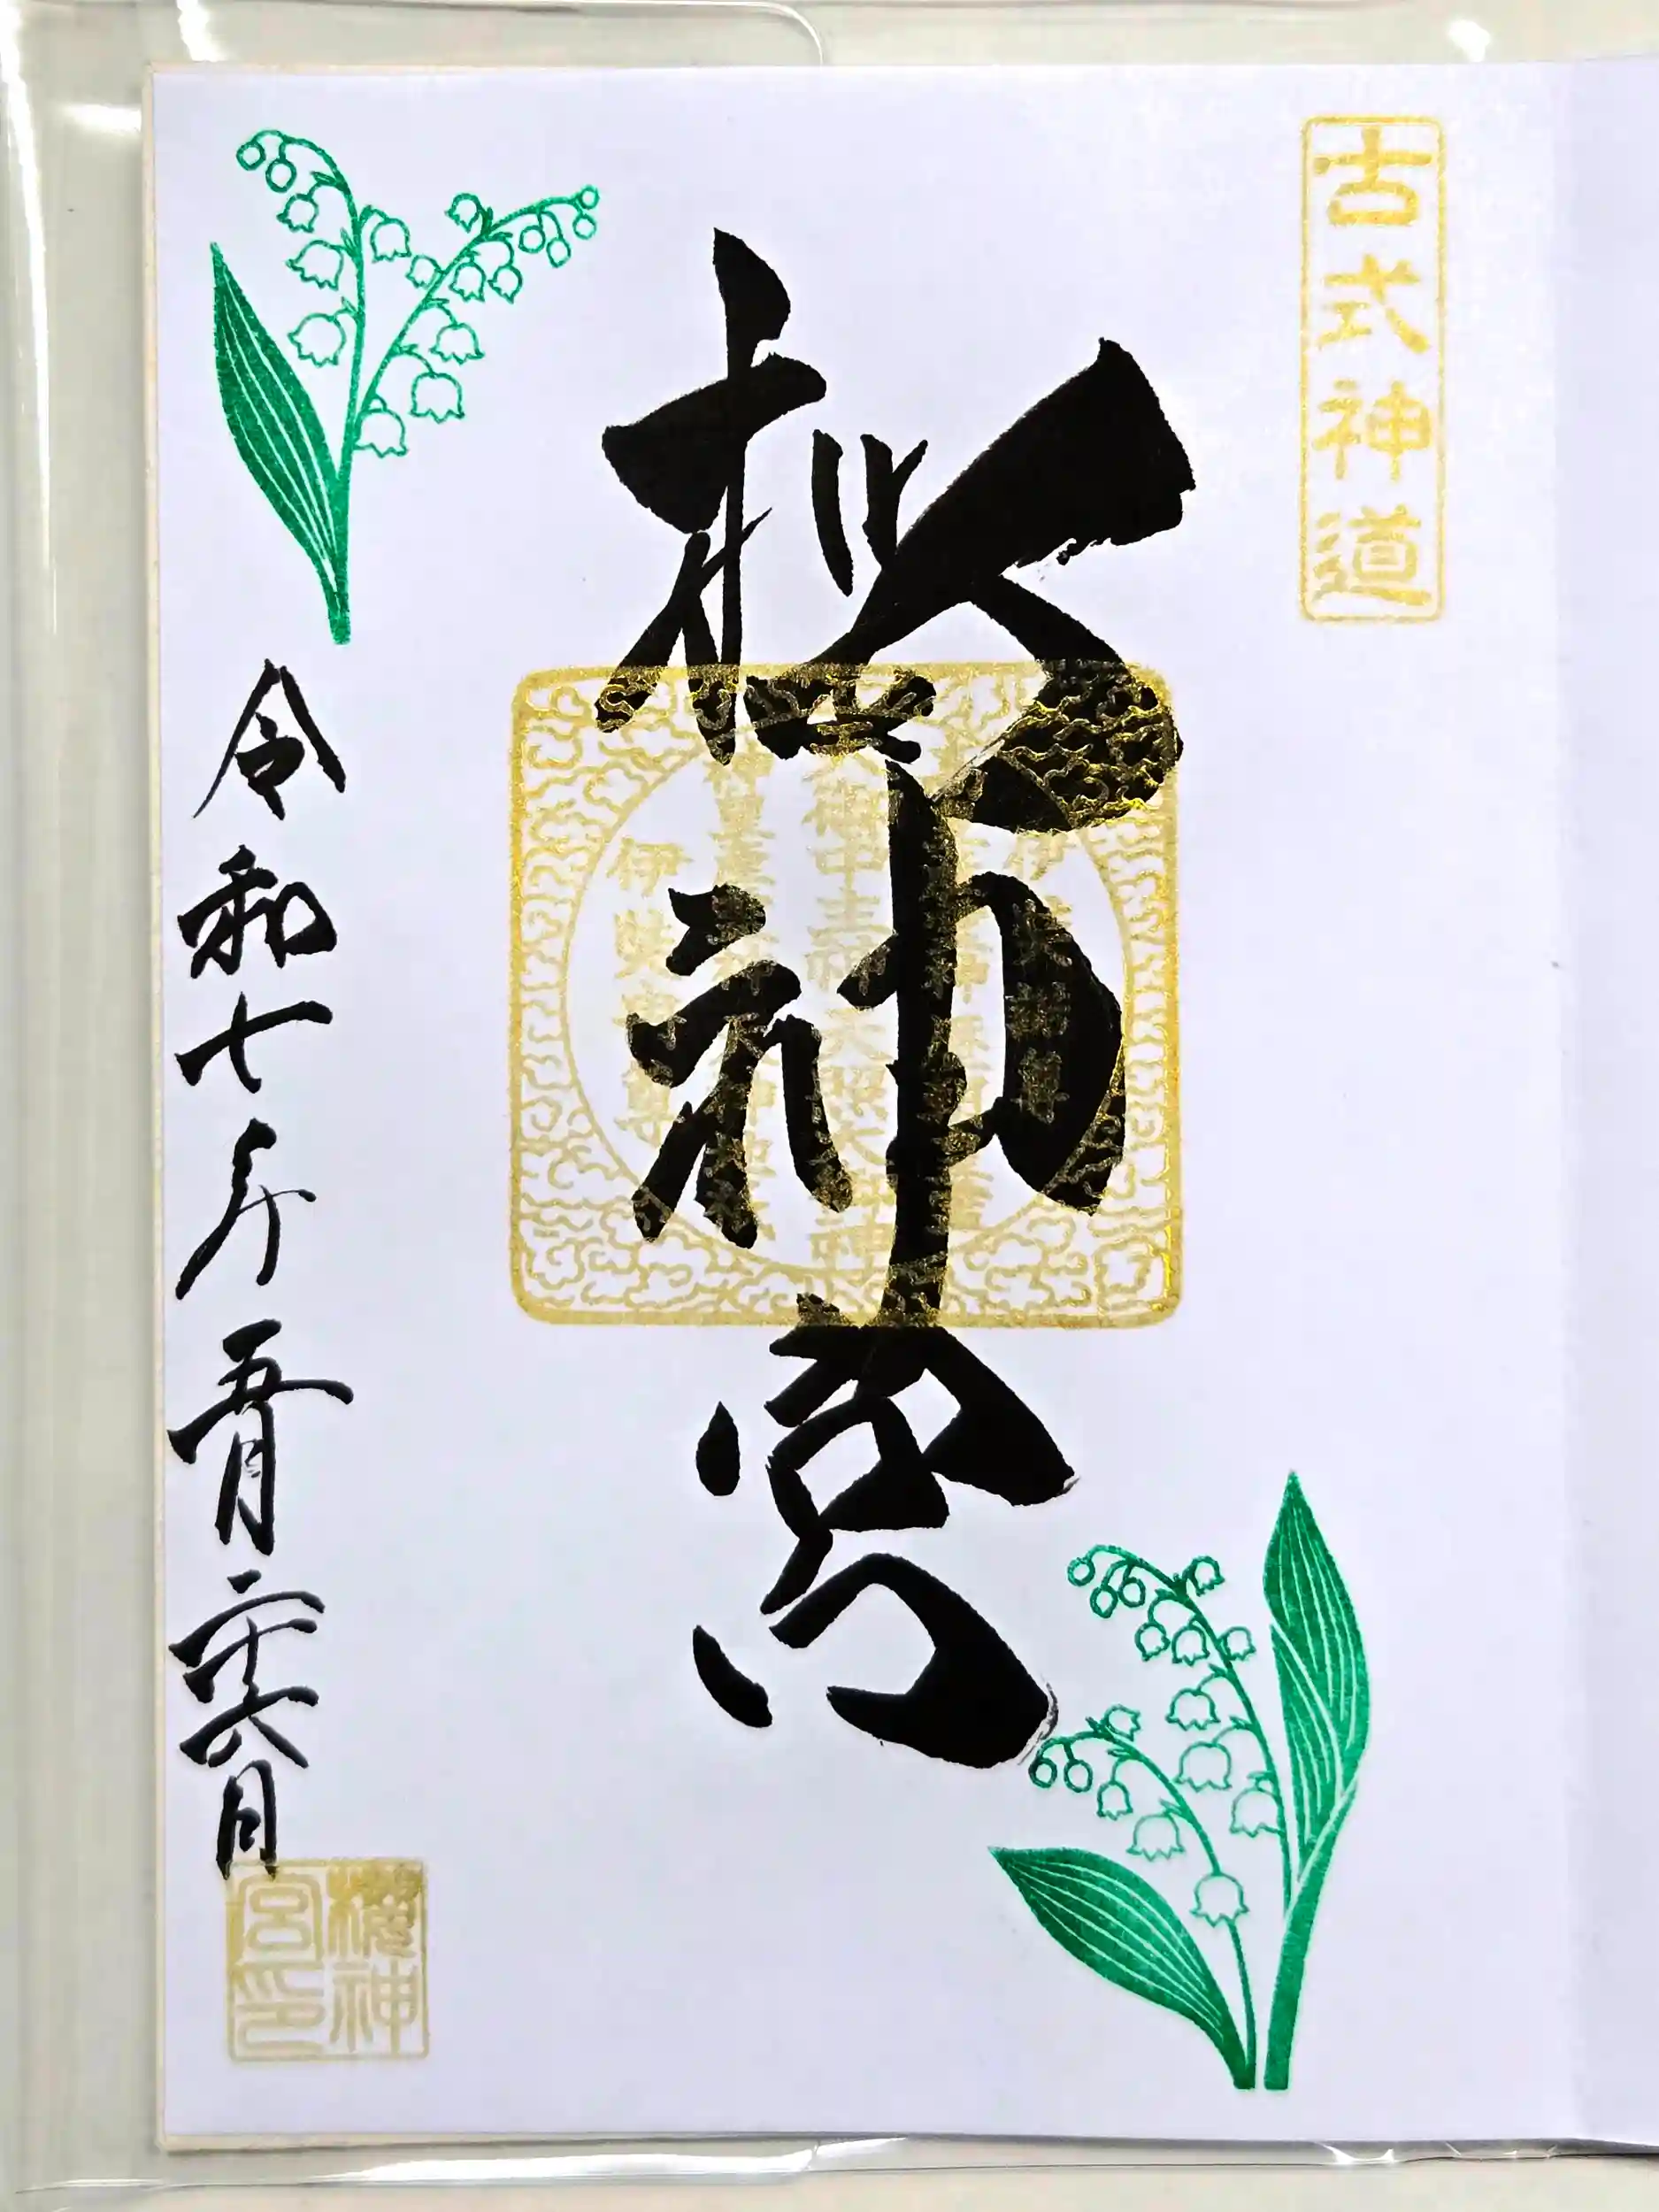 古式神道
桜神宮
令和七年五月二十六日
櫻神
宮印